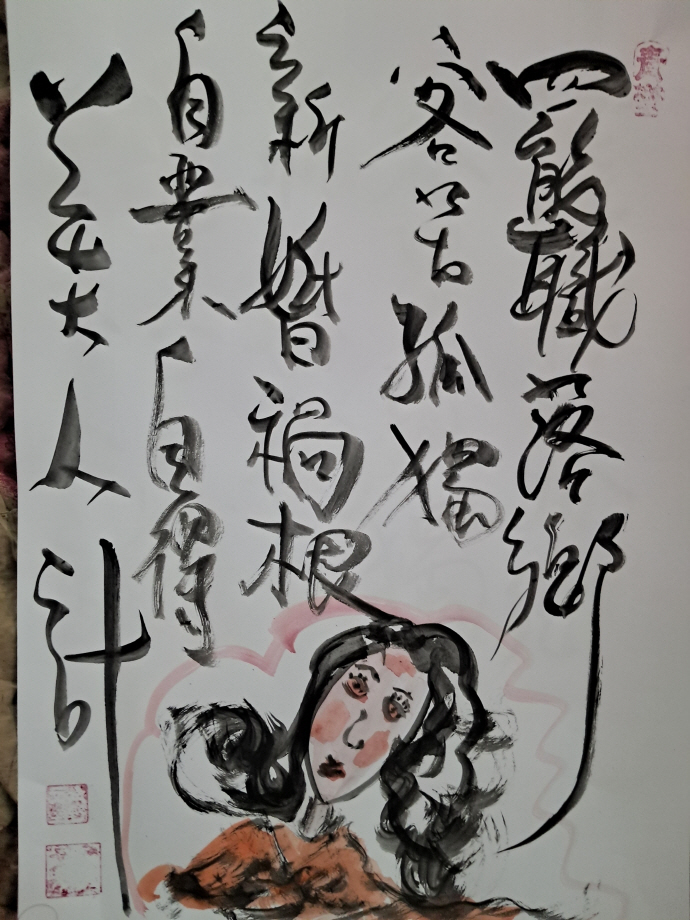 罷職落鄉
客苦孤獨
新婚禍根
自業自得
美人計